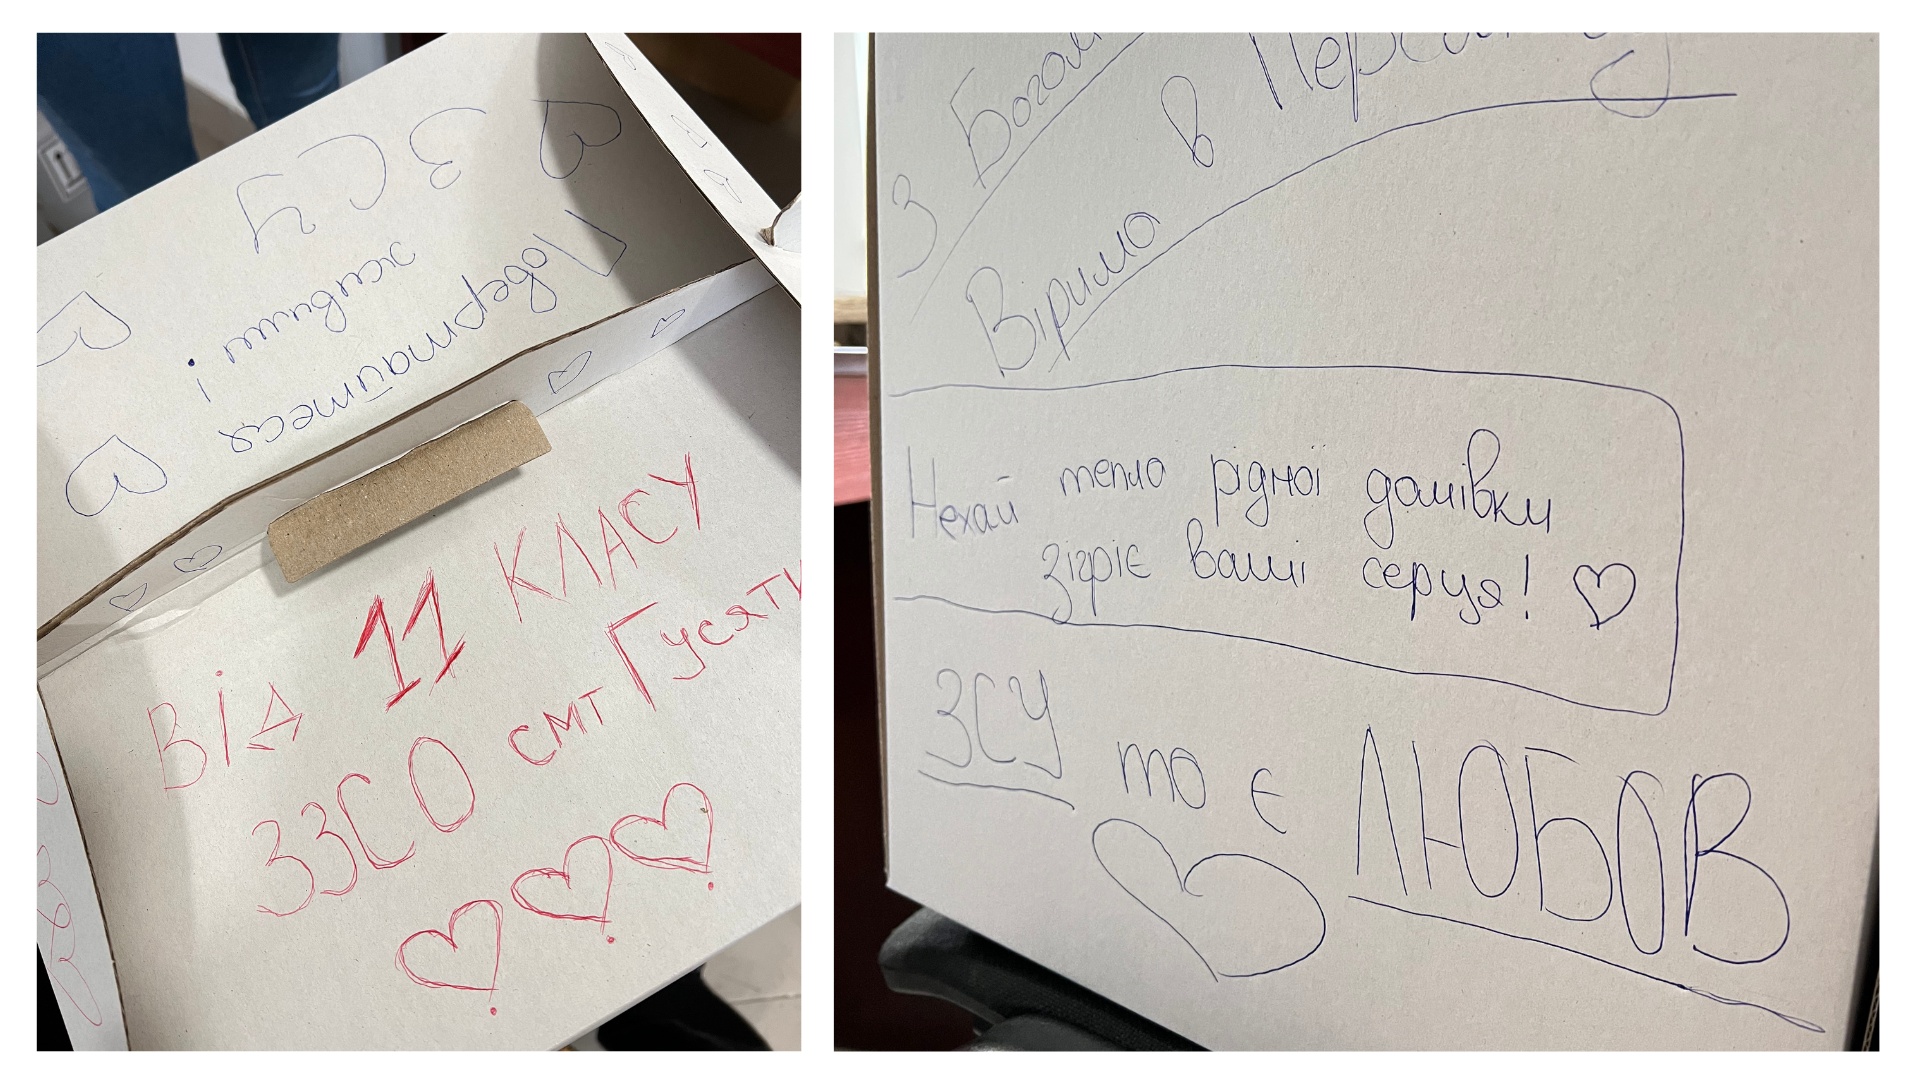 ЗСУ
Повертайтеся
живими!
Від 11 КЛАСУ
ЗЗСО смт Гусяти
З Богом
Вірима в
Нехай тепло рідної домівки
зігріє ваші серця!
ЗСУ то є ЛЮБОВ